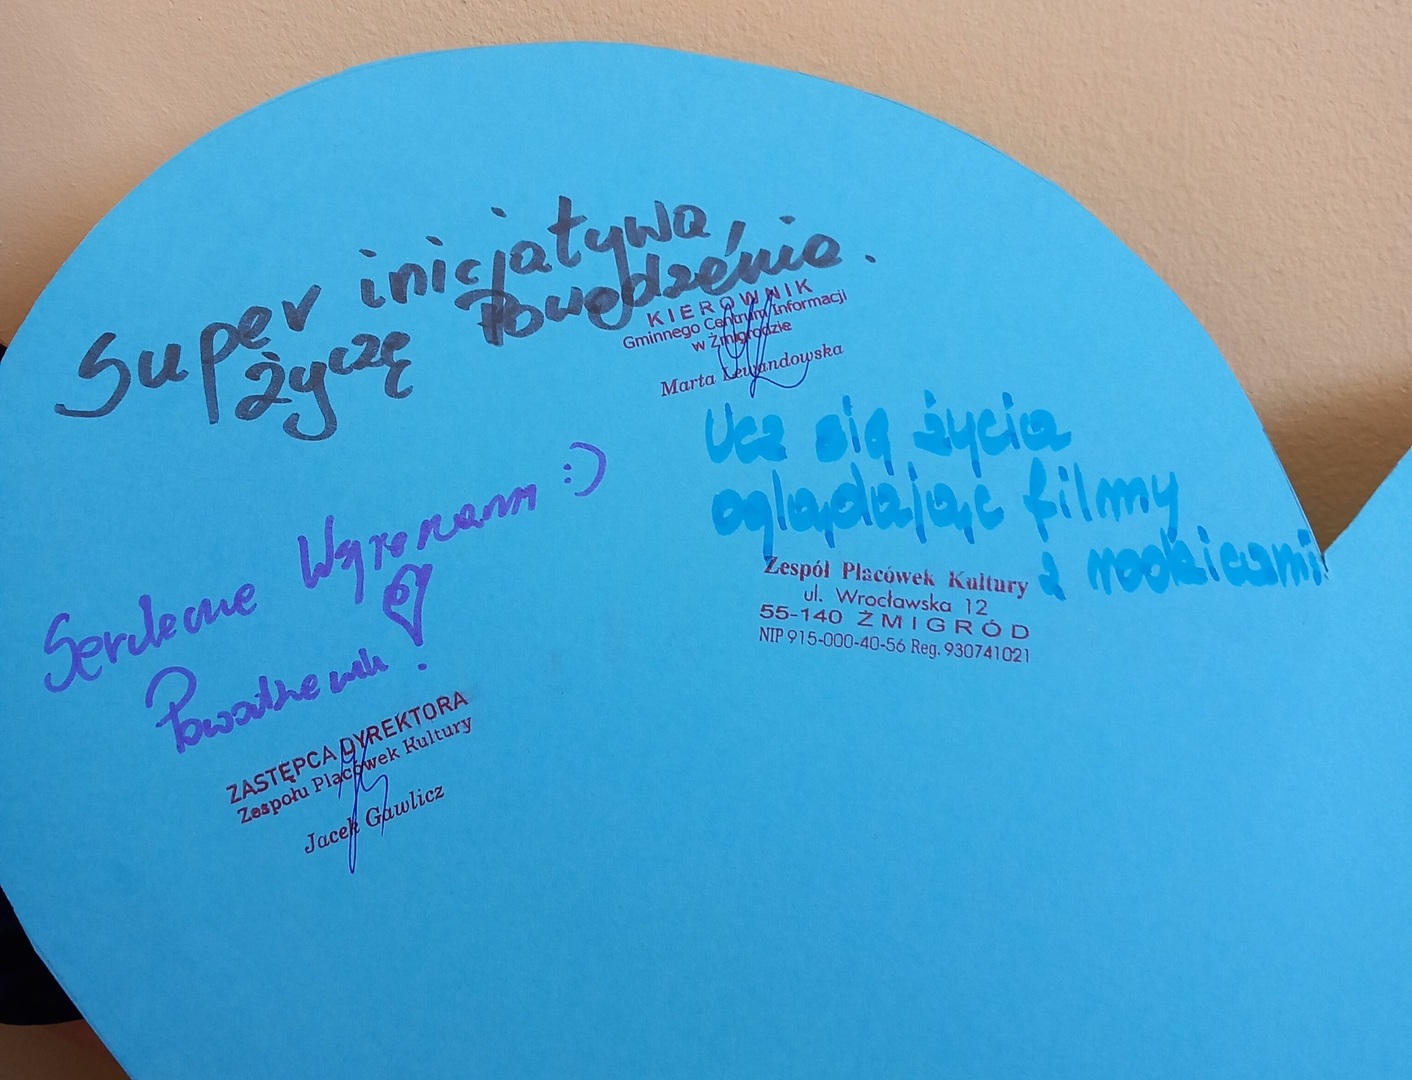 Super inicjatywa,
życzę Powodzenia.
KIEROWNIK
Gminnego Centrum Informacji
w Żmigrodzie
Marta Lewandowska
Ucz się życia
oglądając filmy
z rodzicami!
Zespół Placówek Kultury
ul. Wrocławska 12
55-140 ŻMIGRÓD
NIP 915-000-40-56 Reg. 930741021
Serdecznie :)
Powodzenia!
ZASTĘPCA DYREKTORA
Zespołu Placówek Kultury
Jacek Gawlicz